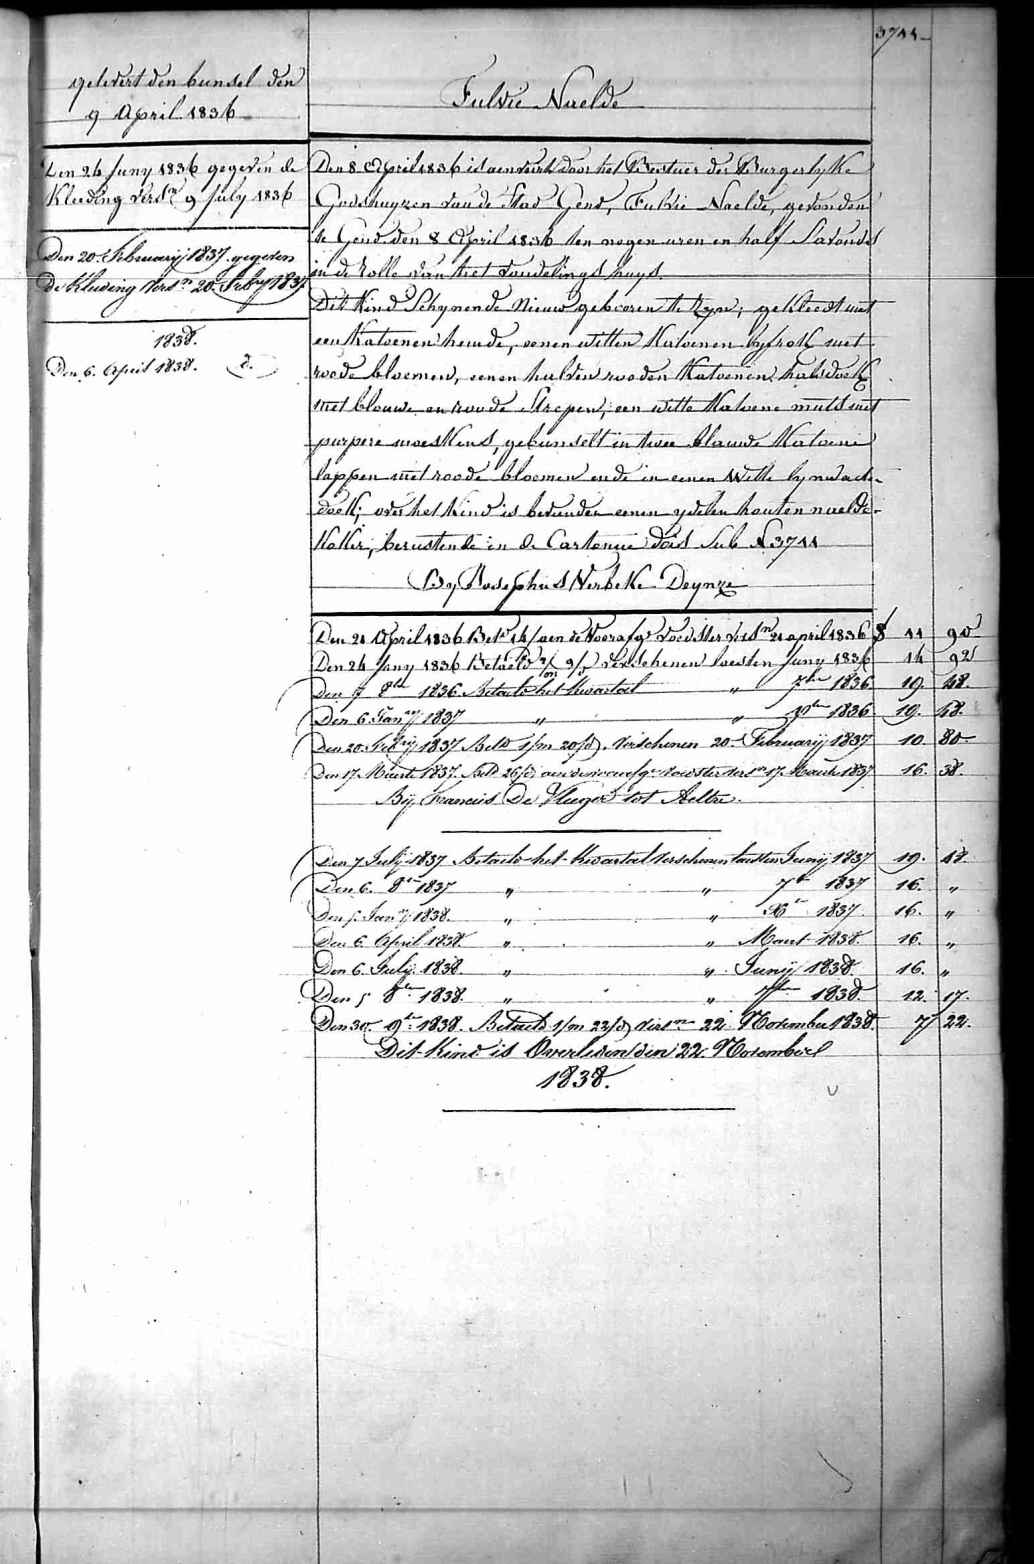 3711
gelevert den bunsel den
9 April 1836
Den 24 Juny 1836 gegeven de
Kleeding vers.n 9 July 1836
Den 20 Februarij 1837 gegeven
de Kleeding vers.n 20 Feb.y 1837
1838.
Den 6. April 1838. d.
Fulvie Naelde
Den 8 April 1836 is aenveird door het Bestuer der Burgerlyke
Godshuyzen van de Stad Gend, Fulvie Naelde, gevonden
te Gend den 8 April 1836 ten negen uren en half S'avonds
in de rolle van het vondelingshuys.
Dit Kind Schynende Nieuw geboren te zyn; gekleed met
een Katoenen hemde, eenen witten Katoenen byfrok met
roode bloemen, eenen halven rooden Katoenen halsdoek
met blauwe en roode Strepen, een witte Katoene muts met
purpere moeskens, gebunselt in twee blauwe Katoene
lappen met roode bloemen ende in eenen witte lynwaete
doek; over het Kind is bevonden eenen ydelen houten naelde-
Koker, berustende in de Cartonnie dees Sub N 3711
By Josephus Verbeke Deynze
Den 21 April 1836 Bet.d 14/ aen de voorafg.e voedster vers.n 21 april 1836 f 11 90
Den 24 Juny 1836 Betaeld 2/m 9/d verschenen loesten Juny 1836 14 92
Den 7 8ber 1836 Betaeld het Kwartael „ 7ber 1836 19. 48.
Den 6 Jan.y 1837 „ „ X.ber 1836 19. 48.
Den 20 Feb.y 1837 Betd 1/m 20/d. verschenen 20. Februarij 1837 10 80.
Den 17. Maert 1837. Betd 26/d aen de voorafg.e voedster vers.n 17. Maert 1837 16. 38.
Bij Francies De Vlieger tot Aeltre.
Den 7 Julij 1837 Betaeld het Kwartael verschenen laesten Junij 1837 19. 48.
Den 6. 8ber 1837 „ „ 7ber 1837 16. „
Den 5. Jan.y 1838. „ „ Xber 1837 16. „
Den 6. April 1838. „ „ Maert 1838. 16. „
Den 6. July. 1838. „ „ Junij 1838. 16. „
Den 5 8ber 1838. „ „ 7ber 1838. 12. 17.
Den 30. 9ber 1838. Betaeld 1/m 22/d vers.n 22 November 1838. 7 22.
Dit Kind is Overleden den 22. November
1838.